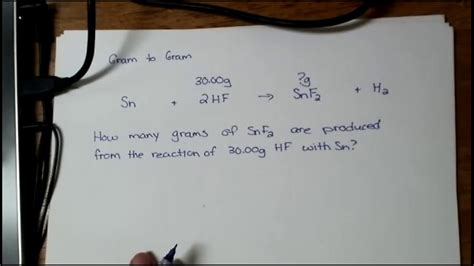 Gram to Gram
30.00g ?g
Sn + 2HF → SnF₂ + H₂
How many grams of SnF₂ are produced
from the reaction of 30.00g HF with Sn?